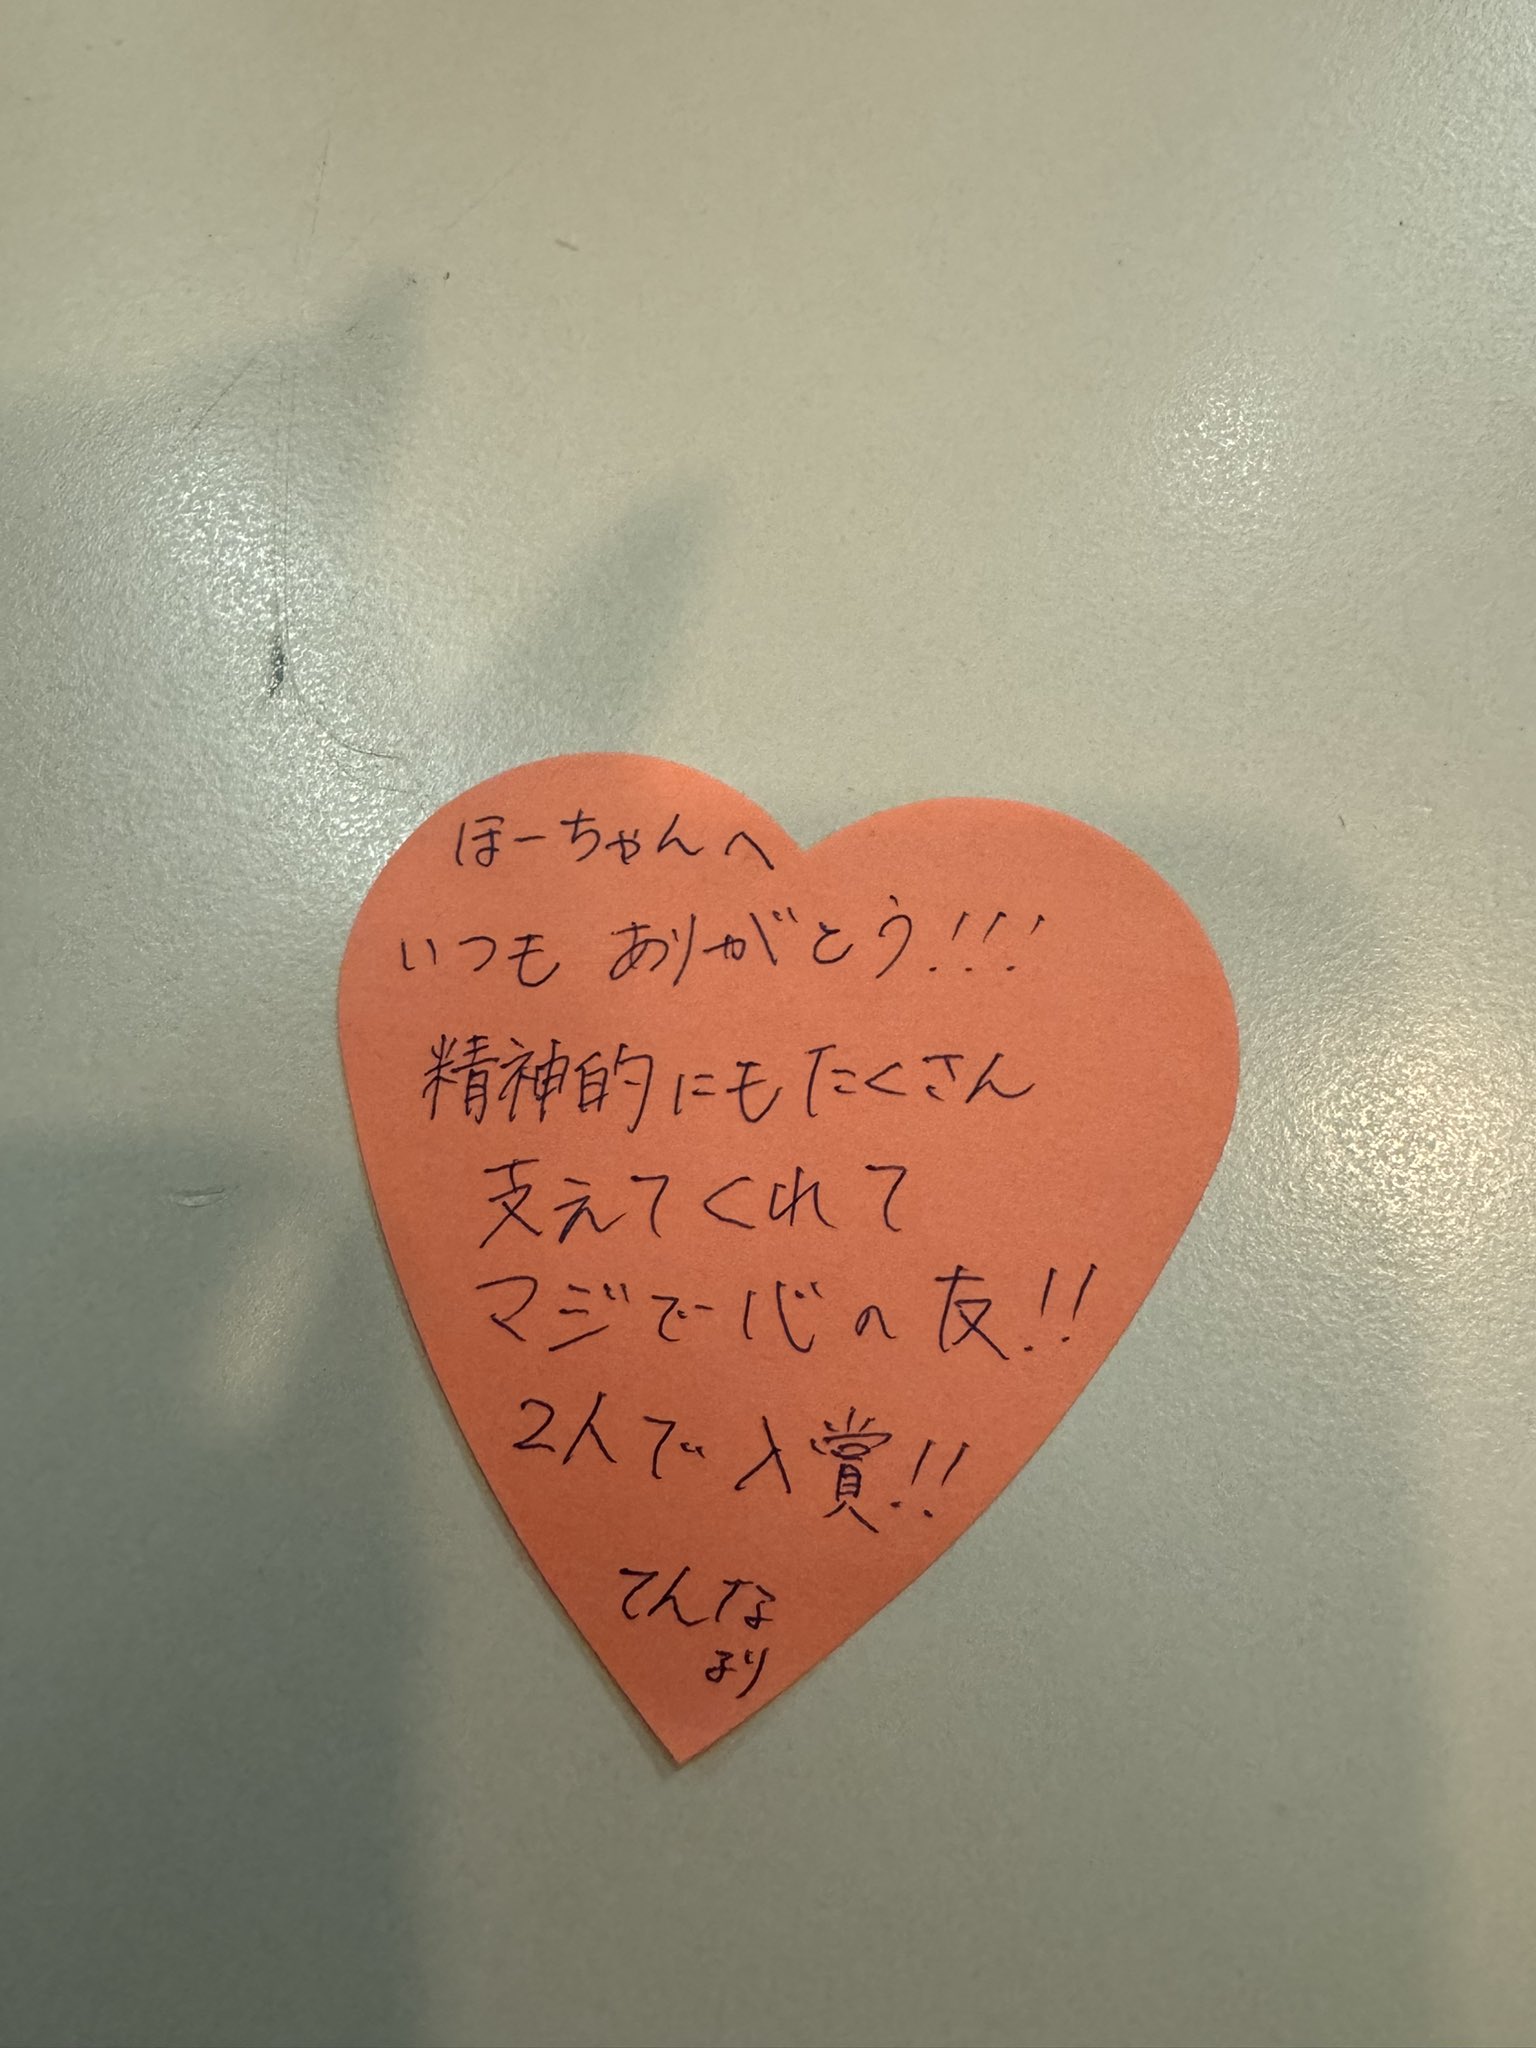 ほーちゃんへ
いつも ありがとう!!!
精神的にもたくさん
支えてくれて
マジで心の友!!
2人で入賞!!
てんな
より